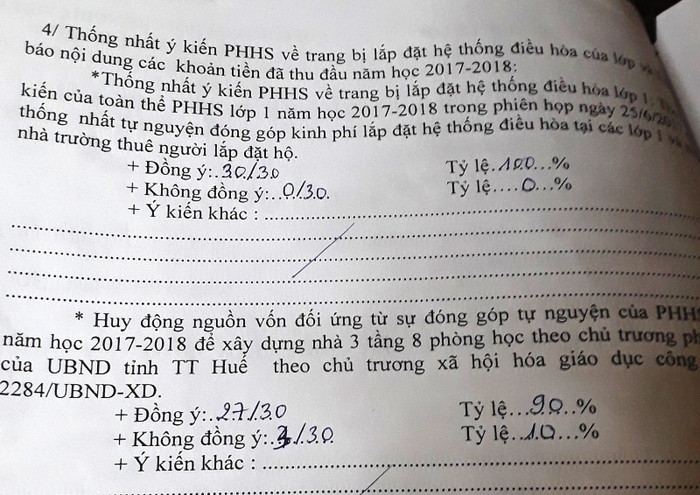 4/ Thống nhất ý kiến PHHS về trang bị lắp đặt hệ thống điều hòa của lớp và
báo nội dung các khoản tiền đã thu đầu năm học 2017-2018:
*Thống nhất ý kiến PHHS về trang bị lắp đặt hệ thống điều hòa lớp 1:
kiến của toàn thể PHHS lớp 1 năm học 2017-2018 trong phiên họp ngày 25/6/
thống nhất tự nguyện đóng góp kinh phí lắp đặt hệ thống điều hòa tại các lớp 1
nhà trường thuê người lắp đặt hộ.
+ Đồng ý:..30/30 Tỷ lệ..100...%
+ Không đồng ý:...0/30. Tỷ lệ....0...%
+ Ý kiến khác : ........................
* Huy động nguồn vốn đối ứng từ sự đóng góp tự nguyện của PHHS
năm học 2017-2018 để xây dựng nhà 3 tầng 8 phòng học theo chủ trương
của UBND tỉnh TT Huế theo chủ trương xã hội hóa giáo dục công
2284/UBND-XD.
+ Đồng ý:..27/30 Tỷ lệ...90..%
+ Không đồng ý:..3/30. Tỷ lệ...10...%
+ Ý kiến khác : ........................